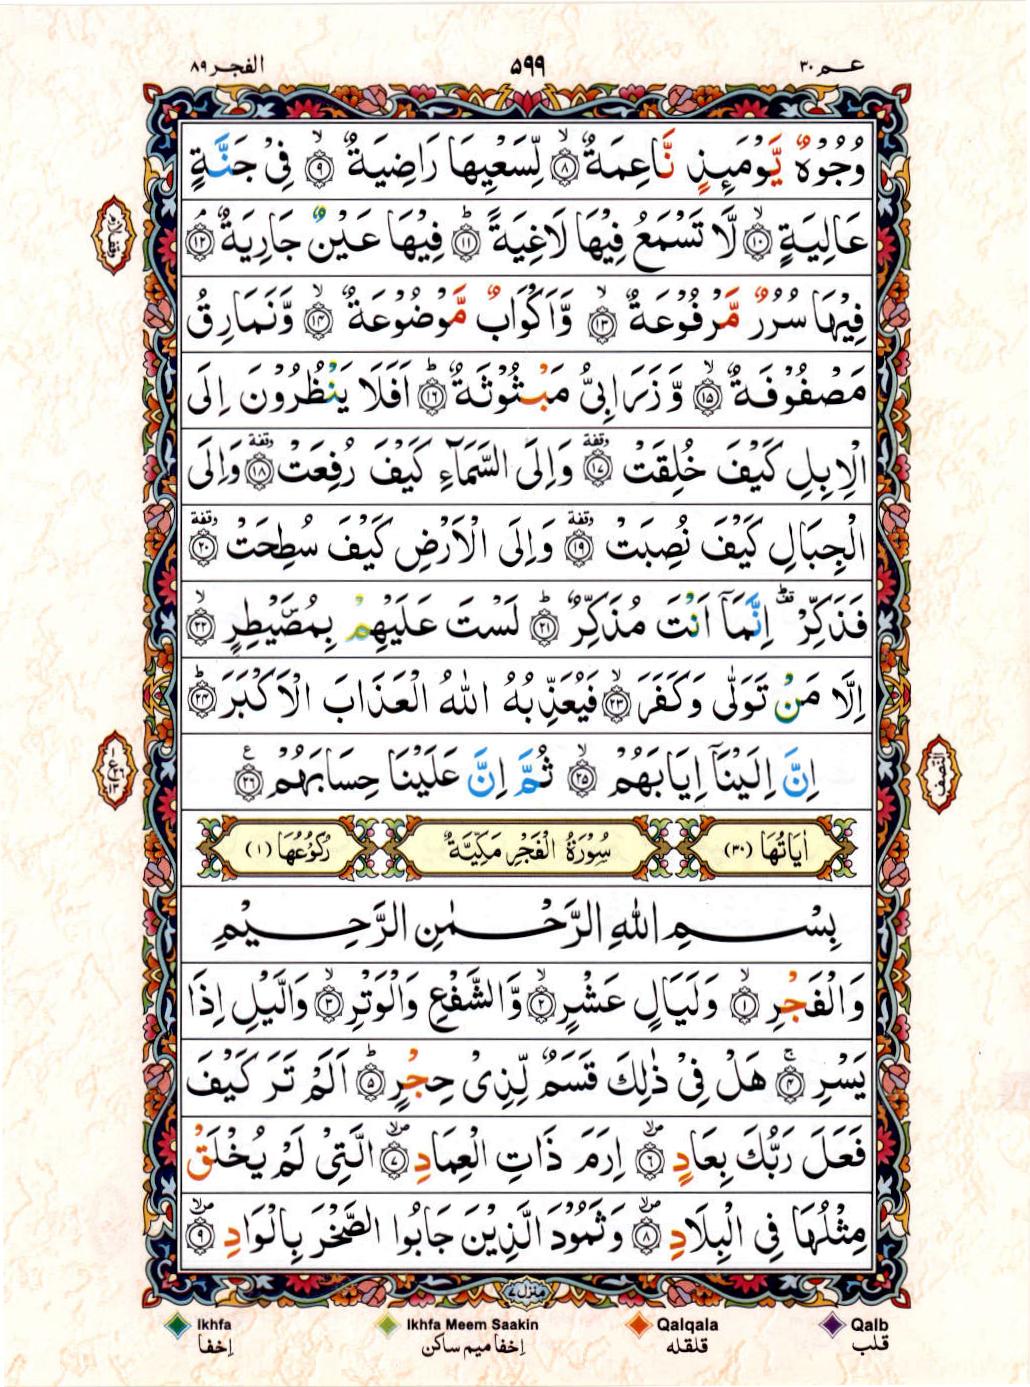 عـم ٣٠
٥٩٩
الفجر ٨٩
وُجُوْهٌ يَّوْمَىِٕذٍ نَّاعِمَةٌ ۙ﴿٨﴾ لِّسَعْيِهَا رَاضِيَةٌ ۙ﴿٩﴾ فِىْ جَنَّةٍ
عَالِيَةٍ ۙ﴿١٠﴾ لَّا تَسْمَعُ فِيْهَا لَاغِيَةً ؕ﴿١١﴾ فِيْهَا عَيْنٌ جَارِيَةٌ ۘ﴿١٢﴾
فِيْهَا سُرُرٌ مَّرْفُوْعَةٌ ۙ﴿١٣﴾ وَّاَكْوَابٌ مَّوْضُوْعَةٌ ۙ﴿١٤﴾ وَّنَمَارِقُ
مَصْفُوْفَةٌ ۙ﴿١٥﴾ وَّزَرَابِىُّ مَبْثُوْثَةٌ ؕ﴿١٦﴾ اَفَلَا يَنْظُرُوْنَ اِلَى
الْاِبِلِ كَيْفَ خُلِقَتْ وقفة﴿١٧﴾ وَاِلَى السَّمَآءِ كَيْفَ رُفِعَتْ وقفة﴿١٨﴾ وَاِلَى
الْجِبَالِ كَيْفَ نُصِبَتْ وقفة﴿١٩﴾ وَاِلَى الْاَرْضِ كَيْفَ سُطِحَتْ وقفة﴿٢٠﴾
فَذَكِّرْ قف اِنَّمَاۤ اَنْتَ مُذَكِّرٌ ؕ﴿٢١﴾ لَسْتَ عَلَيْهِمْ بِمُصَۜيْطِرٍ ۙ﴿٢٢﴾
اِلَّا مَنْ تَوَلّٰى وَكَفَرَ ۙ﴿٢٣﴾ فَيُعَذِّبُهُ اللّٰهُ الْعَذَابَ الْاَكْبَرَ ؕ﴿٢٤﴾
اِنَّ اِلَيْنَاۤ اِيَابَهُمْ ۙ﴿٢٥﴾ ثُمَّ اِنَّ عَلَيْنَا حِسَابَهُمْ ع﴿٢٦﴾
اٰيَاتُهَا (٣٠)
سُوْرَةُ الْفَجْرِ مَكِّيَّةٌ
رُكُوْعُهَا (١)
بِسْمِ اللّٰهِ الرَّحْمٰنِ الرَّحِيْمِ
وَالْفَجْرِ ۙ﴿١﴾ وَلَيَالٍ عَشْرٍ ۙ﴿٢﴾ وَّالشَّفْعِ وَالْوَتْرِ ۙ﴿٣﴾ وَالَّيْلِ اِذَا
يَسْرِ ۚ﴿٤﴾ هَلْ فِىْ ذٰلِكَ قَسَمٌ لِّذِىْ حِجْرٍ ؕ﴿٥﴾ اَلَمْ تَرَ كَيْفَ
فَعَلَ رَبُّكَ بِعَادٍ ۙ﴿٦﴾ اِرَمَ ذَاتِ الْعِمَادِ ۙ﴿٧﴾ الَّتِىْ لَمْ يُخْلَقْ
مِثْلُهَا فِى الْبِلَادِ ۙ﴿٨﴾ وَثَمُوْدَ الَّذِيْنَ جَابُوا الصَّخْرَ بِالْوَادِ ۙ﴿٩﴾
النصف
منزل ٧
Qalb
قلب
Qalqala
قلقله
Ikhfa Meem Saakin
إخفا ميم ساكن
Ikhfa
إخفا